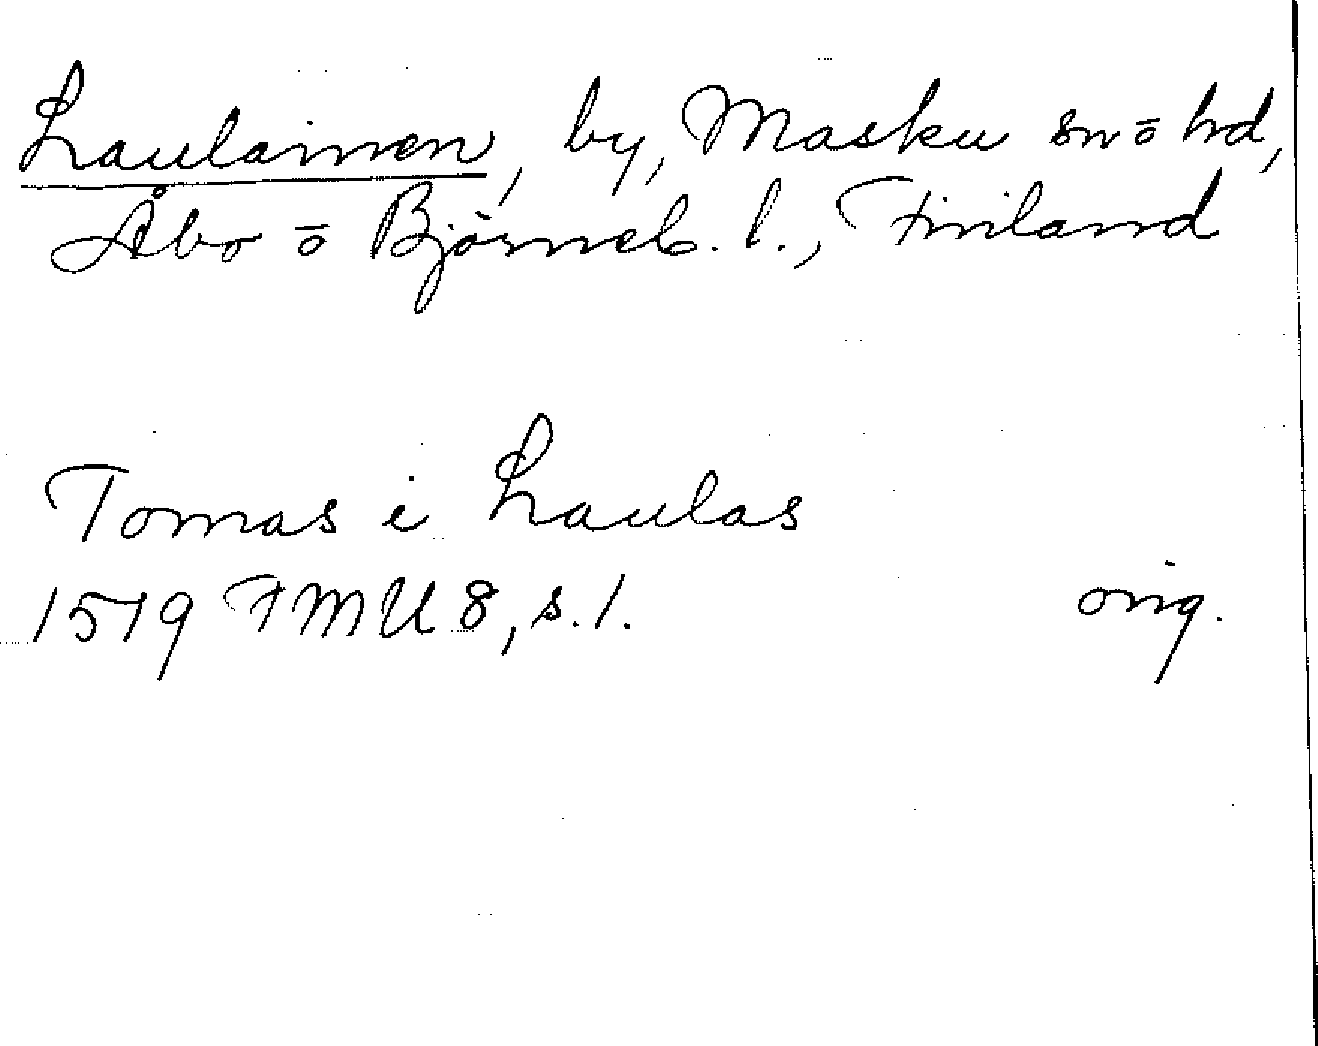 Laulainen, by, Masku sn ō hd,
Åbo ō Björneb. l., Finland
Tomas i Laulas
1519 FMU 8, s. 1. orig.